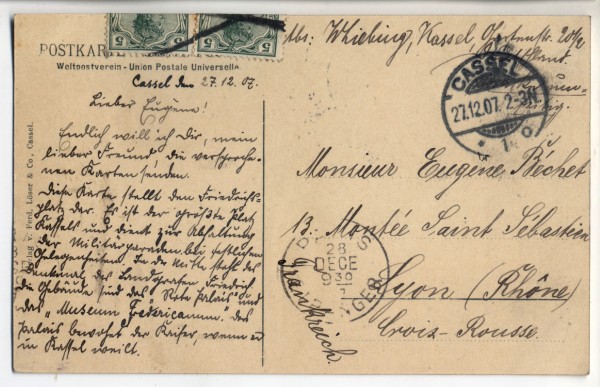 POSTKARTE
Weltpostverein - Union Postale Universelle
5 5 5 5
Abs: Whiebing, Cassel,
CASSEL
27.12.07. 2-3N.
* 1 o
Cassel den 27.12.07.
Lieber Eugène!
Endlich will ich Dir, mein
lieber Freund, die versproche-
nen Karten senden.
Diese Karte stellt den Friedrichs-
platz dar. Es ist der größte Platz
Kassels und dient zur Abhaltung
der Militärparaden bei festlichen
Gelegenheiten. In der Mitte steht das
Denkmal des Landgrafen Friedrich
die Gebäude sind das "Rote Palais" und
das "Museum Fredericanum". Das
Palais bewohnt der Kaiser wenn er
in Kassel weilt.
Verlag v. Ferd. Löser & Co., Cassel.
Monsieur Eugène Béchet
13 Montée Saint Sébastien
Lyon (Rhône)
Croix-Rousse.
Frankreich.
28
DECE
939